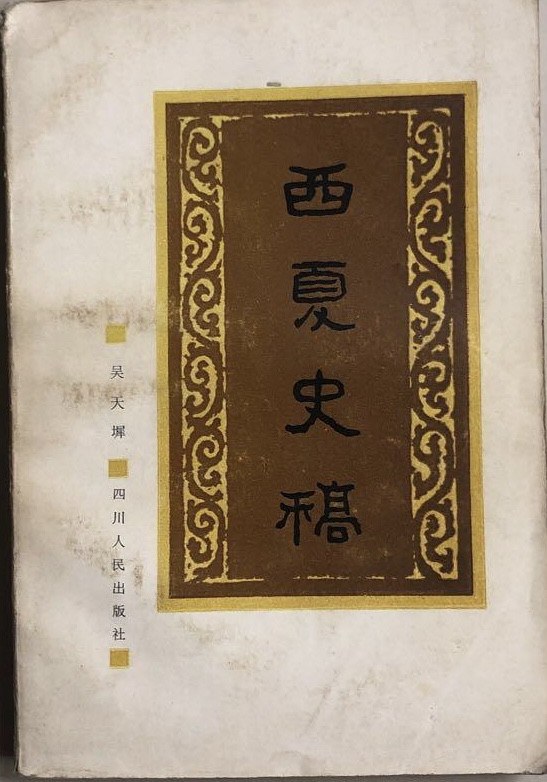 西夏史稿
吴天墀
四川人民出版社